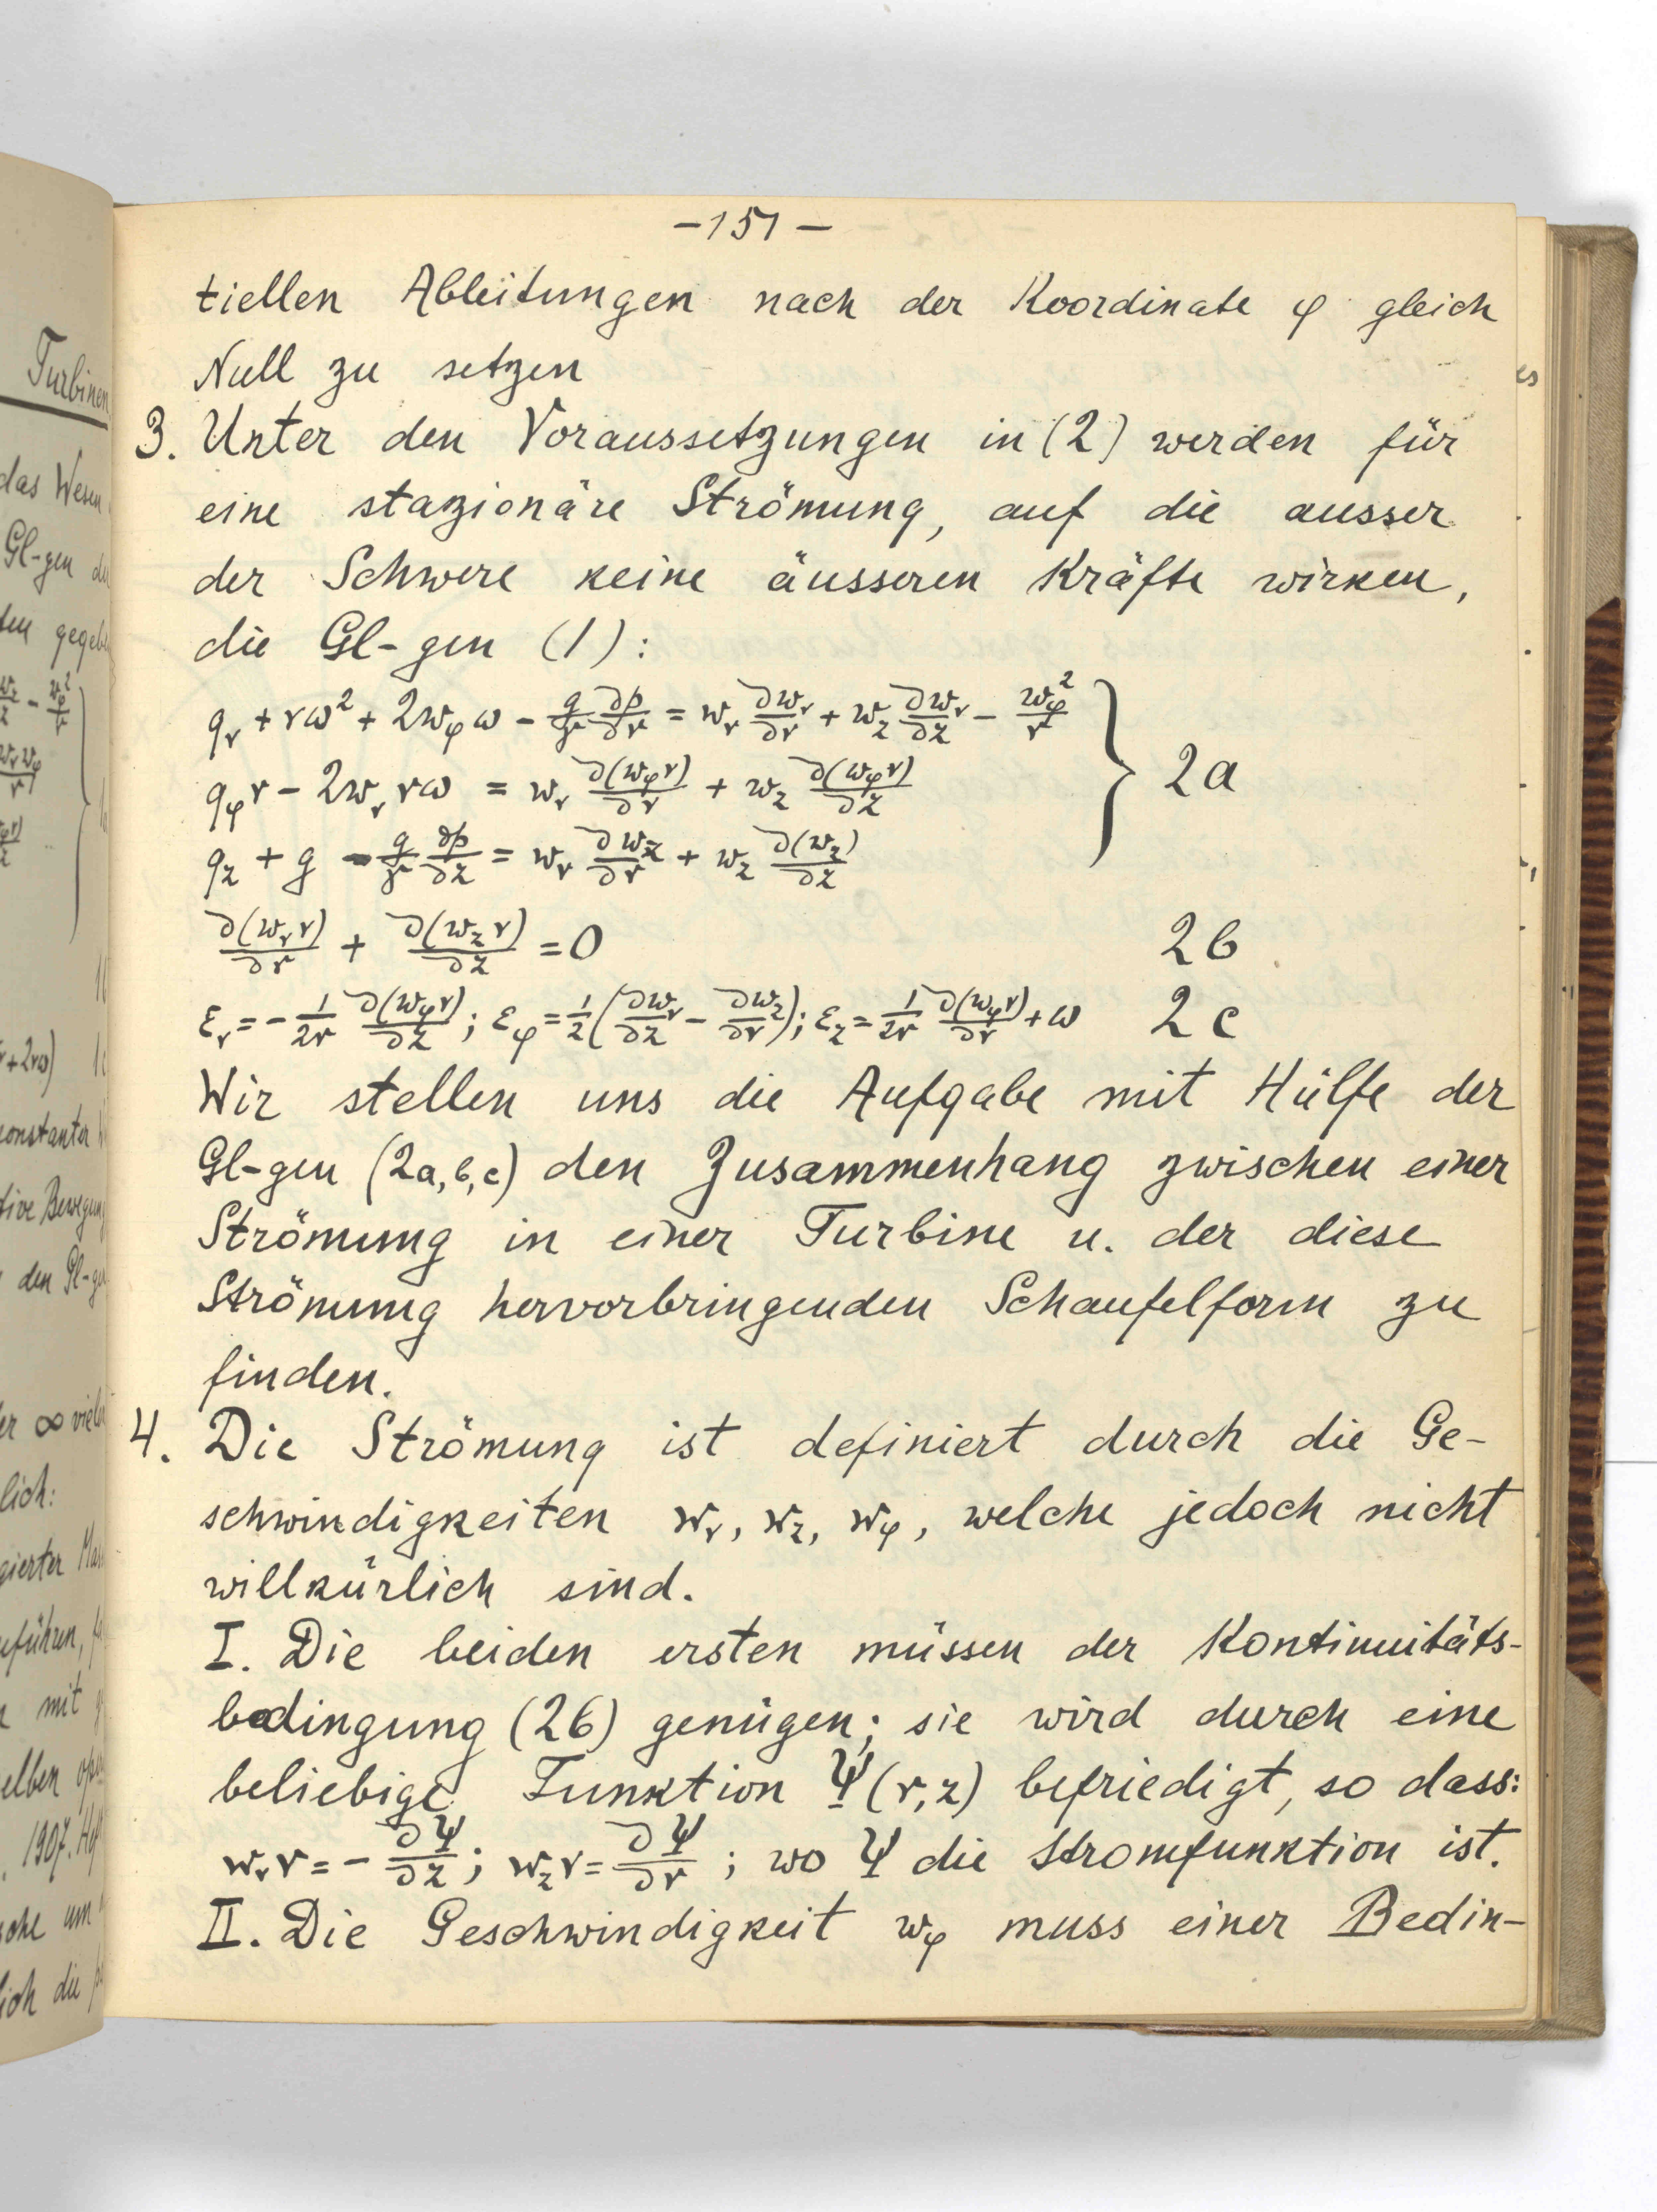 Turbinen
das Wesen
Gl-gen
gegeb
constanter
tive Bewegung
den Gl-gen
∞ viele
lich:
gierter
führen,
mit
elben
1907.
um
lich die
-151-
tiellen Ableitungen nach der Koordinate φ gleich
Null zu setzen
3. Unter den Voraussetzungen in (2) werden für
eine stazionäre Strömung, auf die ausser
der Schwere keine äusseren Kräfte wirken,
die Gl-gen (1):
q_r + rω² + 2w_φ ω - g/γ ∂p/∂r = w_r ∂w_r/∂r + w_z ∂w_r/∂z - w_φ²/r
q_φ r - 2w_r rω = w_r ∂(w_φ r)/∂r + w_z ∂(w_φ r)/∂z } 2a
q_z + g - g/γ ∂p/∂z = w_r ∂w_z/∂r + w_z ∂(w_z)/∂z
∂(w_r r)/∂r + ∂(w_z r)/∂z = 0 2b
ε_r = - 1/2r ∂(w_φ r)/∂z; ε_φ = 1/2 (∂w_r/∂z - ∂w_z/∂r); ε_z = 1/2r ∂(w_φ r)/∂r + ω 2c
Wir stellen uns die Aufgabe mit Hülfe der
Gl-gen (2a,b,c) den Zusammenhang zwischen einer
Strömung in einer Turbine u. der diese
Strömung hervorbringenden Schaufelform zu
finden.
4. Die Strömung ist definiert durch die Ge-
schwindigkeiten w_r, w_z, w_φ, welche jedoch nicht
willkürlich sind.
I. Die beiden ersten müssen der Kontinuitäts-
bedingung (2b) genügen; sie wird durch eine
beliebige Funktion Ψ(r,z) befriedigt, so dass:
w_r r = - ∂Ψ/∂z; w_z r = ∂Ψ/∂r; wo Ψ die Stromfunktion ist.
II. Die Geschwindigkeit w_φ muss einer Bedin-